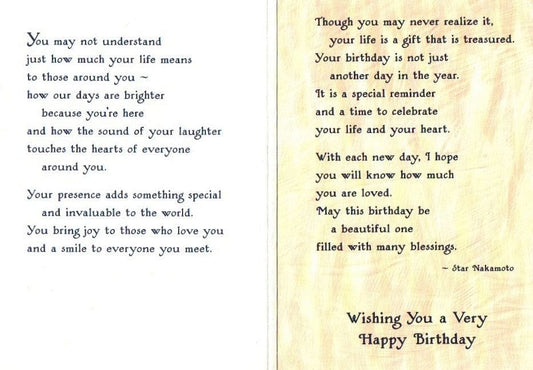 You may not understand
just how much your life means
to those around you ~
how our days are brighter
because you're here
and how the sound of your laughter
touches the hearts of everyone
around you.
Your presence adds something special
and invaluable to the world.
You bring joy to those who love you
and a smile to everyone you meet.
Though you may never realize it,
your life is a gift that is treasured.
Your birthday is not just
another day in the year.
It is a special reminder
and a time to celebrate
your life and your heart.
With each new day, I hope
you will know how much
you are loved.
May this birthday be
a beautiful one
filled with many blessings.
~ Star Nakamoto
Wishing You a Very
Happy Birthday